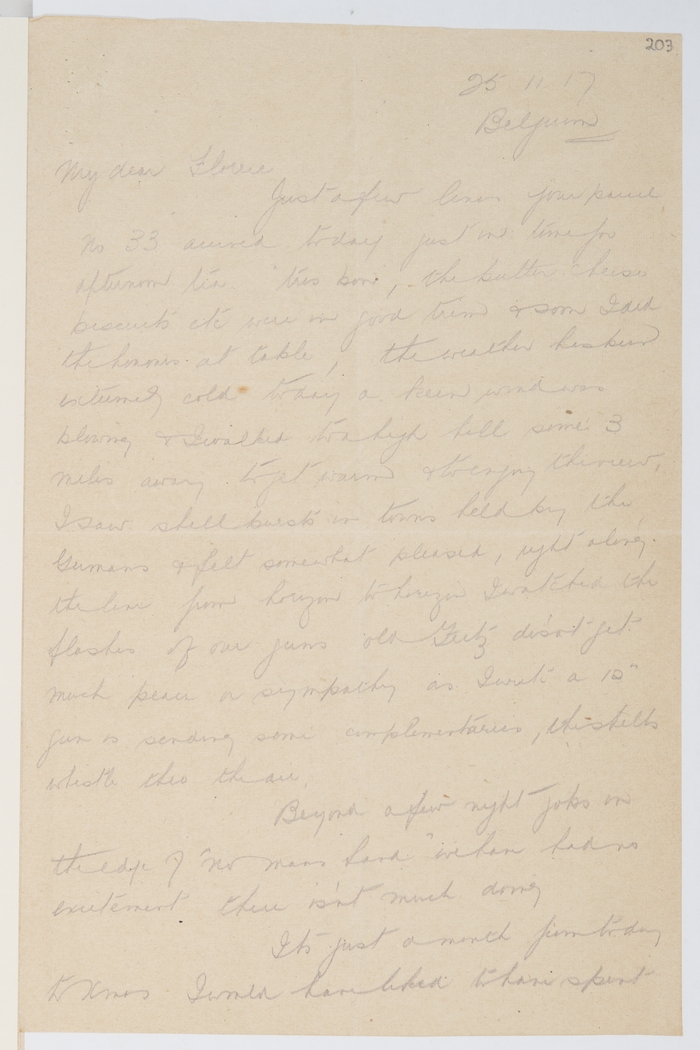 203
25 11 17
Belgium
My dear Florrie
Just a few lines your parcel
No 33 arrived today just in time for
afternoon tea. "tres bon", the butter cheese
biscuits etc were in good trim & soon I did
the honours at table, the weather has been
extremely cold today a keen wind was
blowing & I walked to a high hill some 3
miles away to get warm & to enjoy the view,
I saw shell bursts in towns held by the
Germans & felt somewhat pleased, right along
the line from horizon to horizon I watched the
flashes of our guns old Fritz didn't get
much peace or sympathy as I write a 15"
gun is sending some complimentaries, the shells
whistle thro the air.
Beyond a few night jobs on
the edge of "no mans land" we have had no
excitement there isn't much doing
Its just a month from today
to Xmas I would have liked to have spent